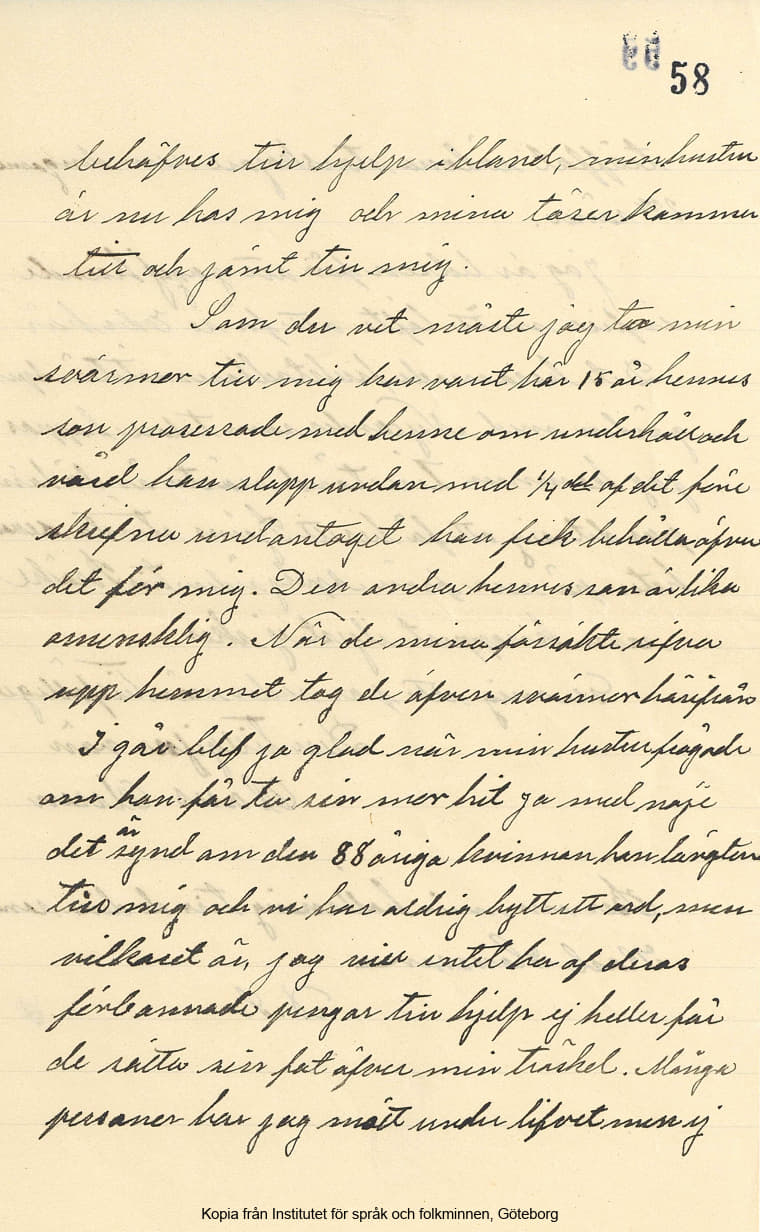 58
behöfves till hjelp ibland, min hustru
är nu hos mig och mina töser kommer
titt och jämt till mig.
Som du vet måste jag taa min
svärmor till mig har varet här 15 år hennes
son prosessade med henne om underhåll och
vård han slapp undan med 1/4 del af det före
skrifna undantaget han fick behålla äfven
det för mig. Den andra hennes son är lika
omensklig. När de mina försökte rifva
upp hemmet tog de äfven svärmor härifrån
I går blef ja glad när min hustru frågade
om hon får ta sin mor hit ja med nöje
det är synd om den 88 åriga kvinnan hon längten
till mig och vi har aldrig bytt ett ord, men
vilkoret är, jag vill intet ha af deras
förbannade pengar till hjelp ej heller får
de sätta sin fot öfver min tröskel. Många
personer har jag mött under lifvet men ej
Kopia från Institutet för språk och folkminnen, Göteborg